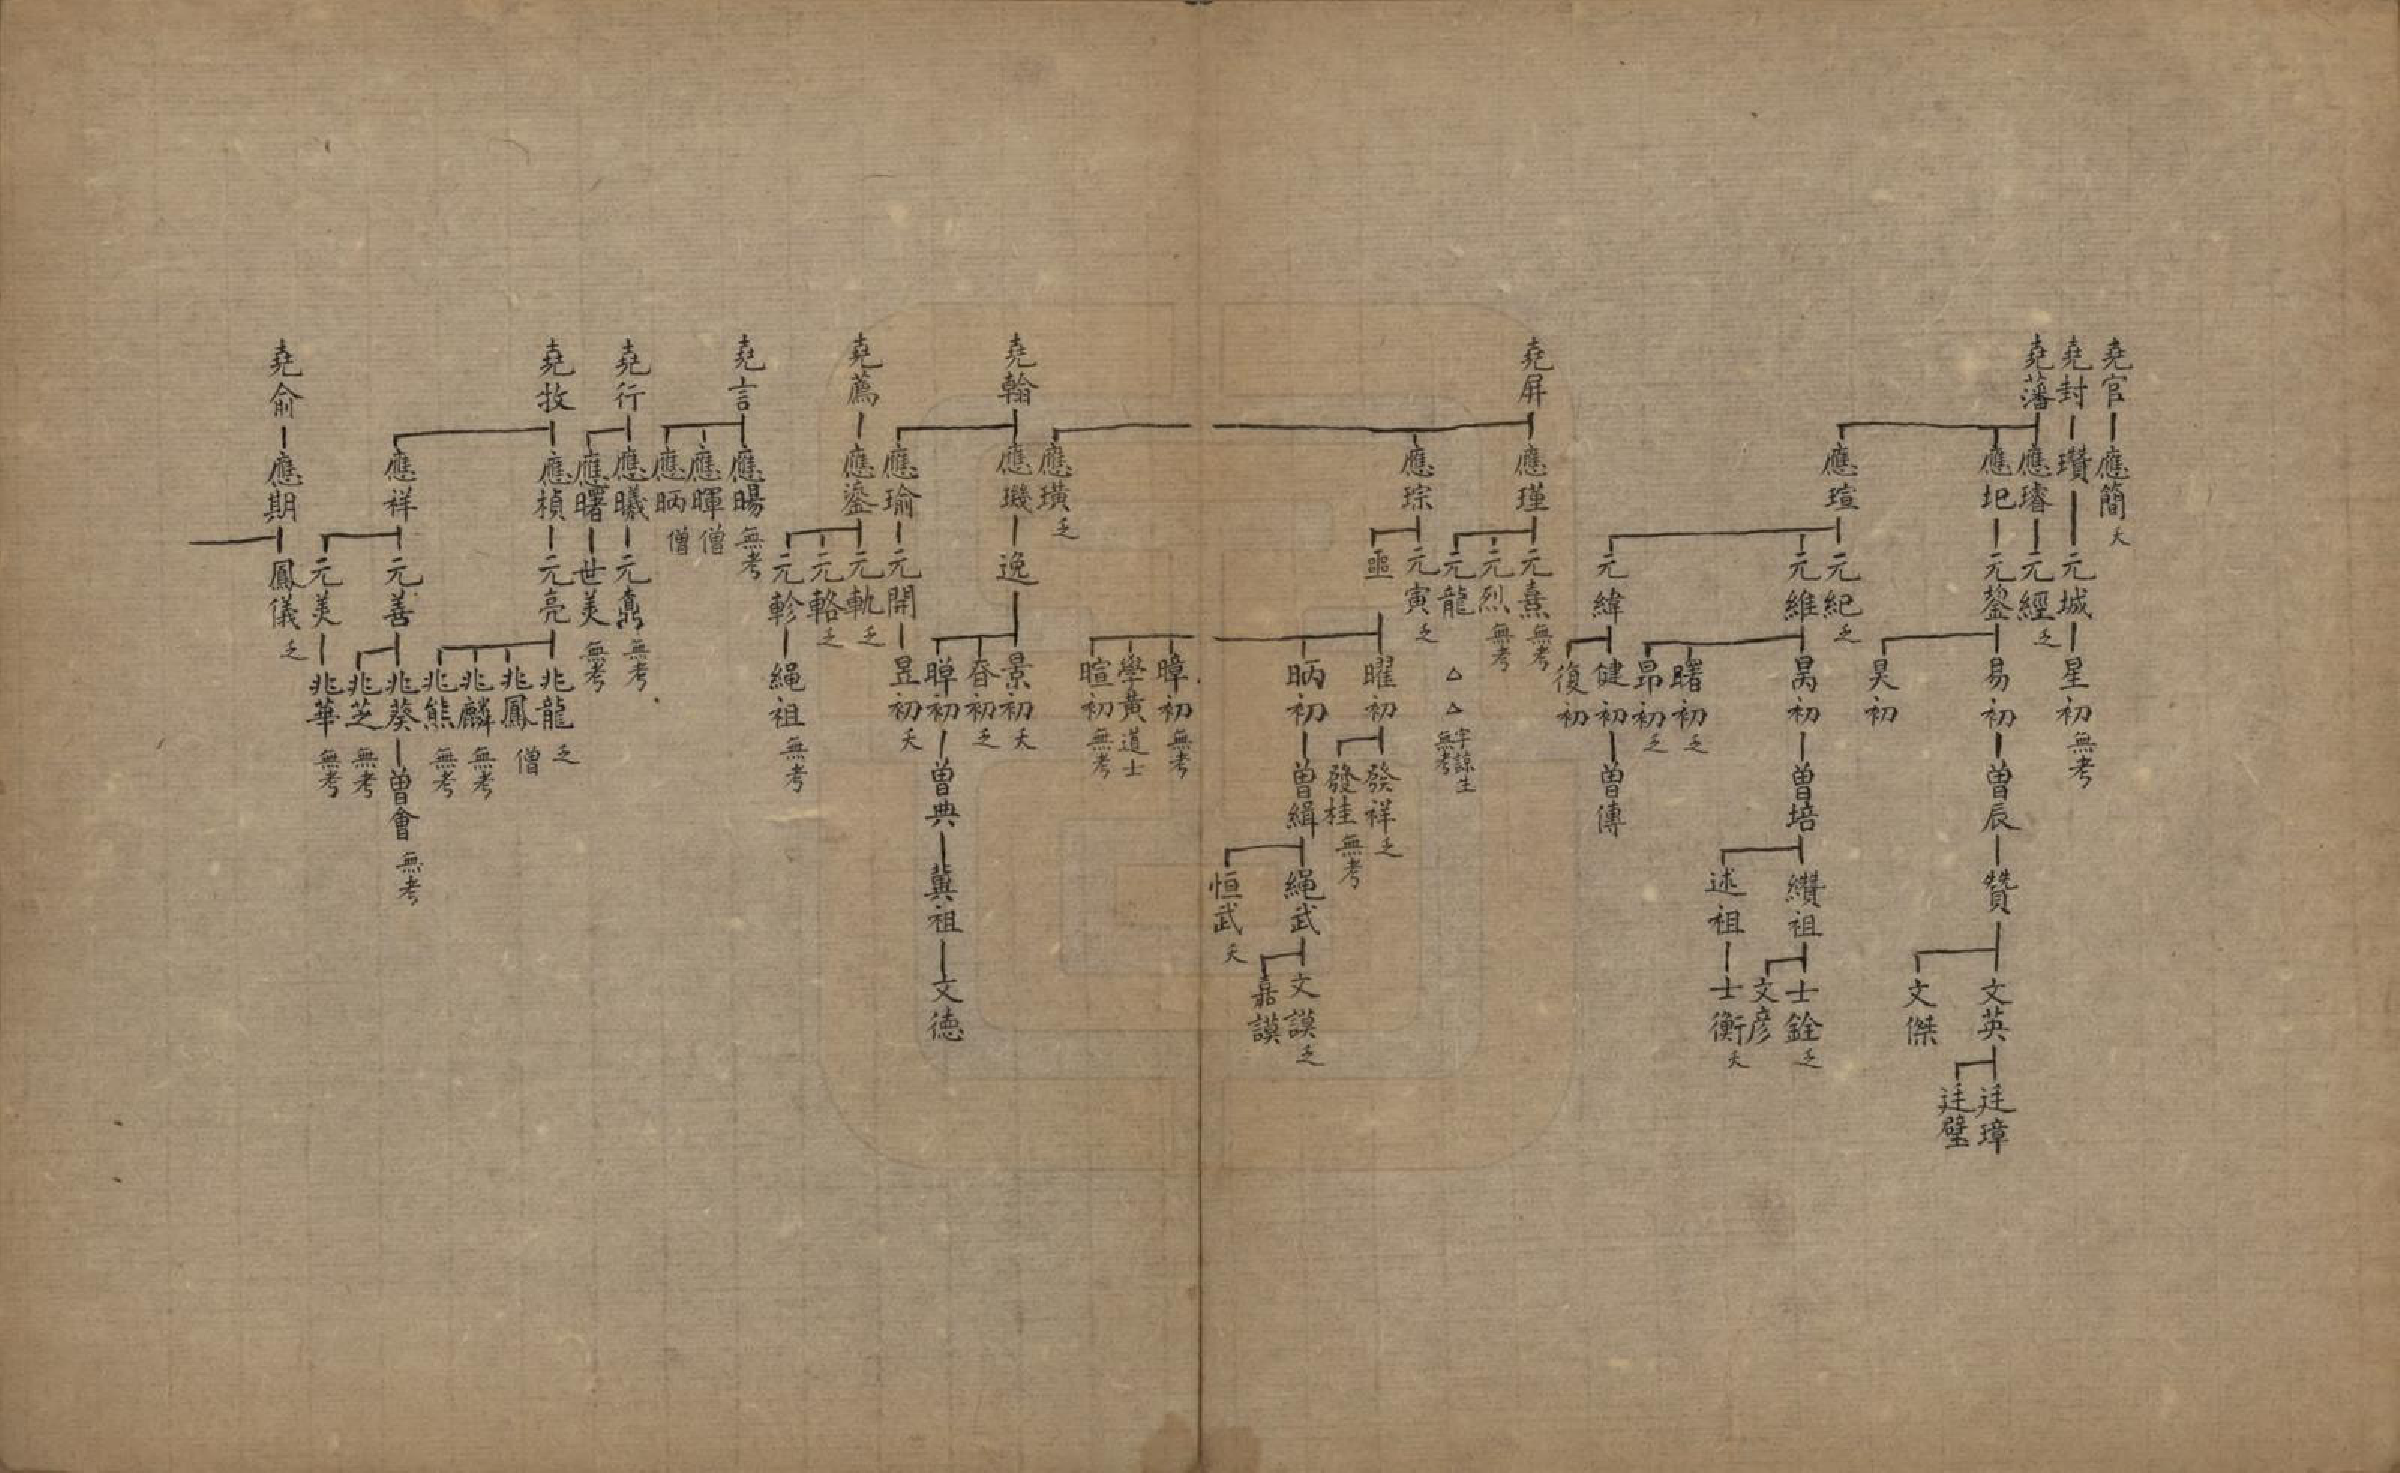 堯官
應簡
夭
堯封
瓚
元城
星初
無考
堯藩
應璿
元經
乏
應圯
元鋆
易初
曾辰
贊
文英
廷璋
廷璧
文傑
昊初
應瑄
元紀
乏
元維
暠初
曾培
纘祖
士銓
乏
文彥
述祖
士衡
夭
曙初
乏
昴初
乏
元緯
健初
曾傳
復初
堯屏
應瑾
元熹
無考
元烈
無考
元龍
△
△
字諒生
無考
應琮
元寅
乏
曜初
發祥
乏
發桂
無考
昞初
曾緝
繩武
文謨
乏
嘉謨
恒武
夭
暲初
無考
學黃
道士
暄初
無考
應璜
乏
堯翰
應璣
逸
景初
夭
昚初
乏
曄初
曾典
冀祖
文德
應瑜
元開
昱初
夭
堯薦
應鎏
元軌
乏
元輅
乏
元軫
繩祖
無考
堯言
應暘
無考
應暉
僧
應昞
僧
堯行
應曦
元鼒
無考
應曙
世美
無考
堯牧
應楨
元亮
兆龍
乏
兆鳳
僧
兆麟
無考
兆熊
無考
應祥
元善
兆葵
曾會
無考
兆芝
無考
元美
兆華
無考
堯俞
應期
鳳儀
乏